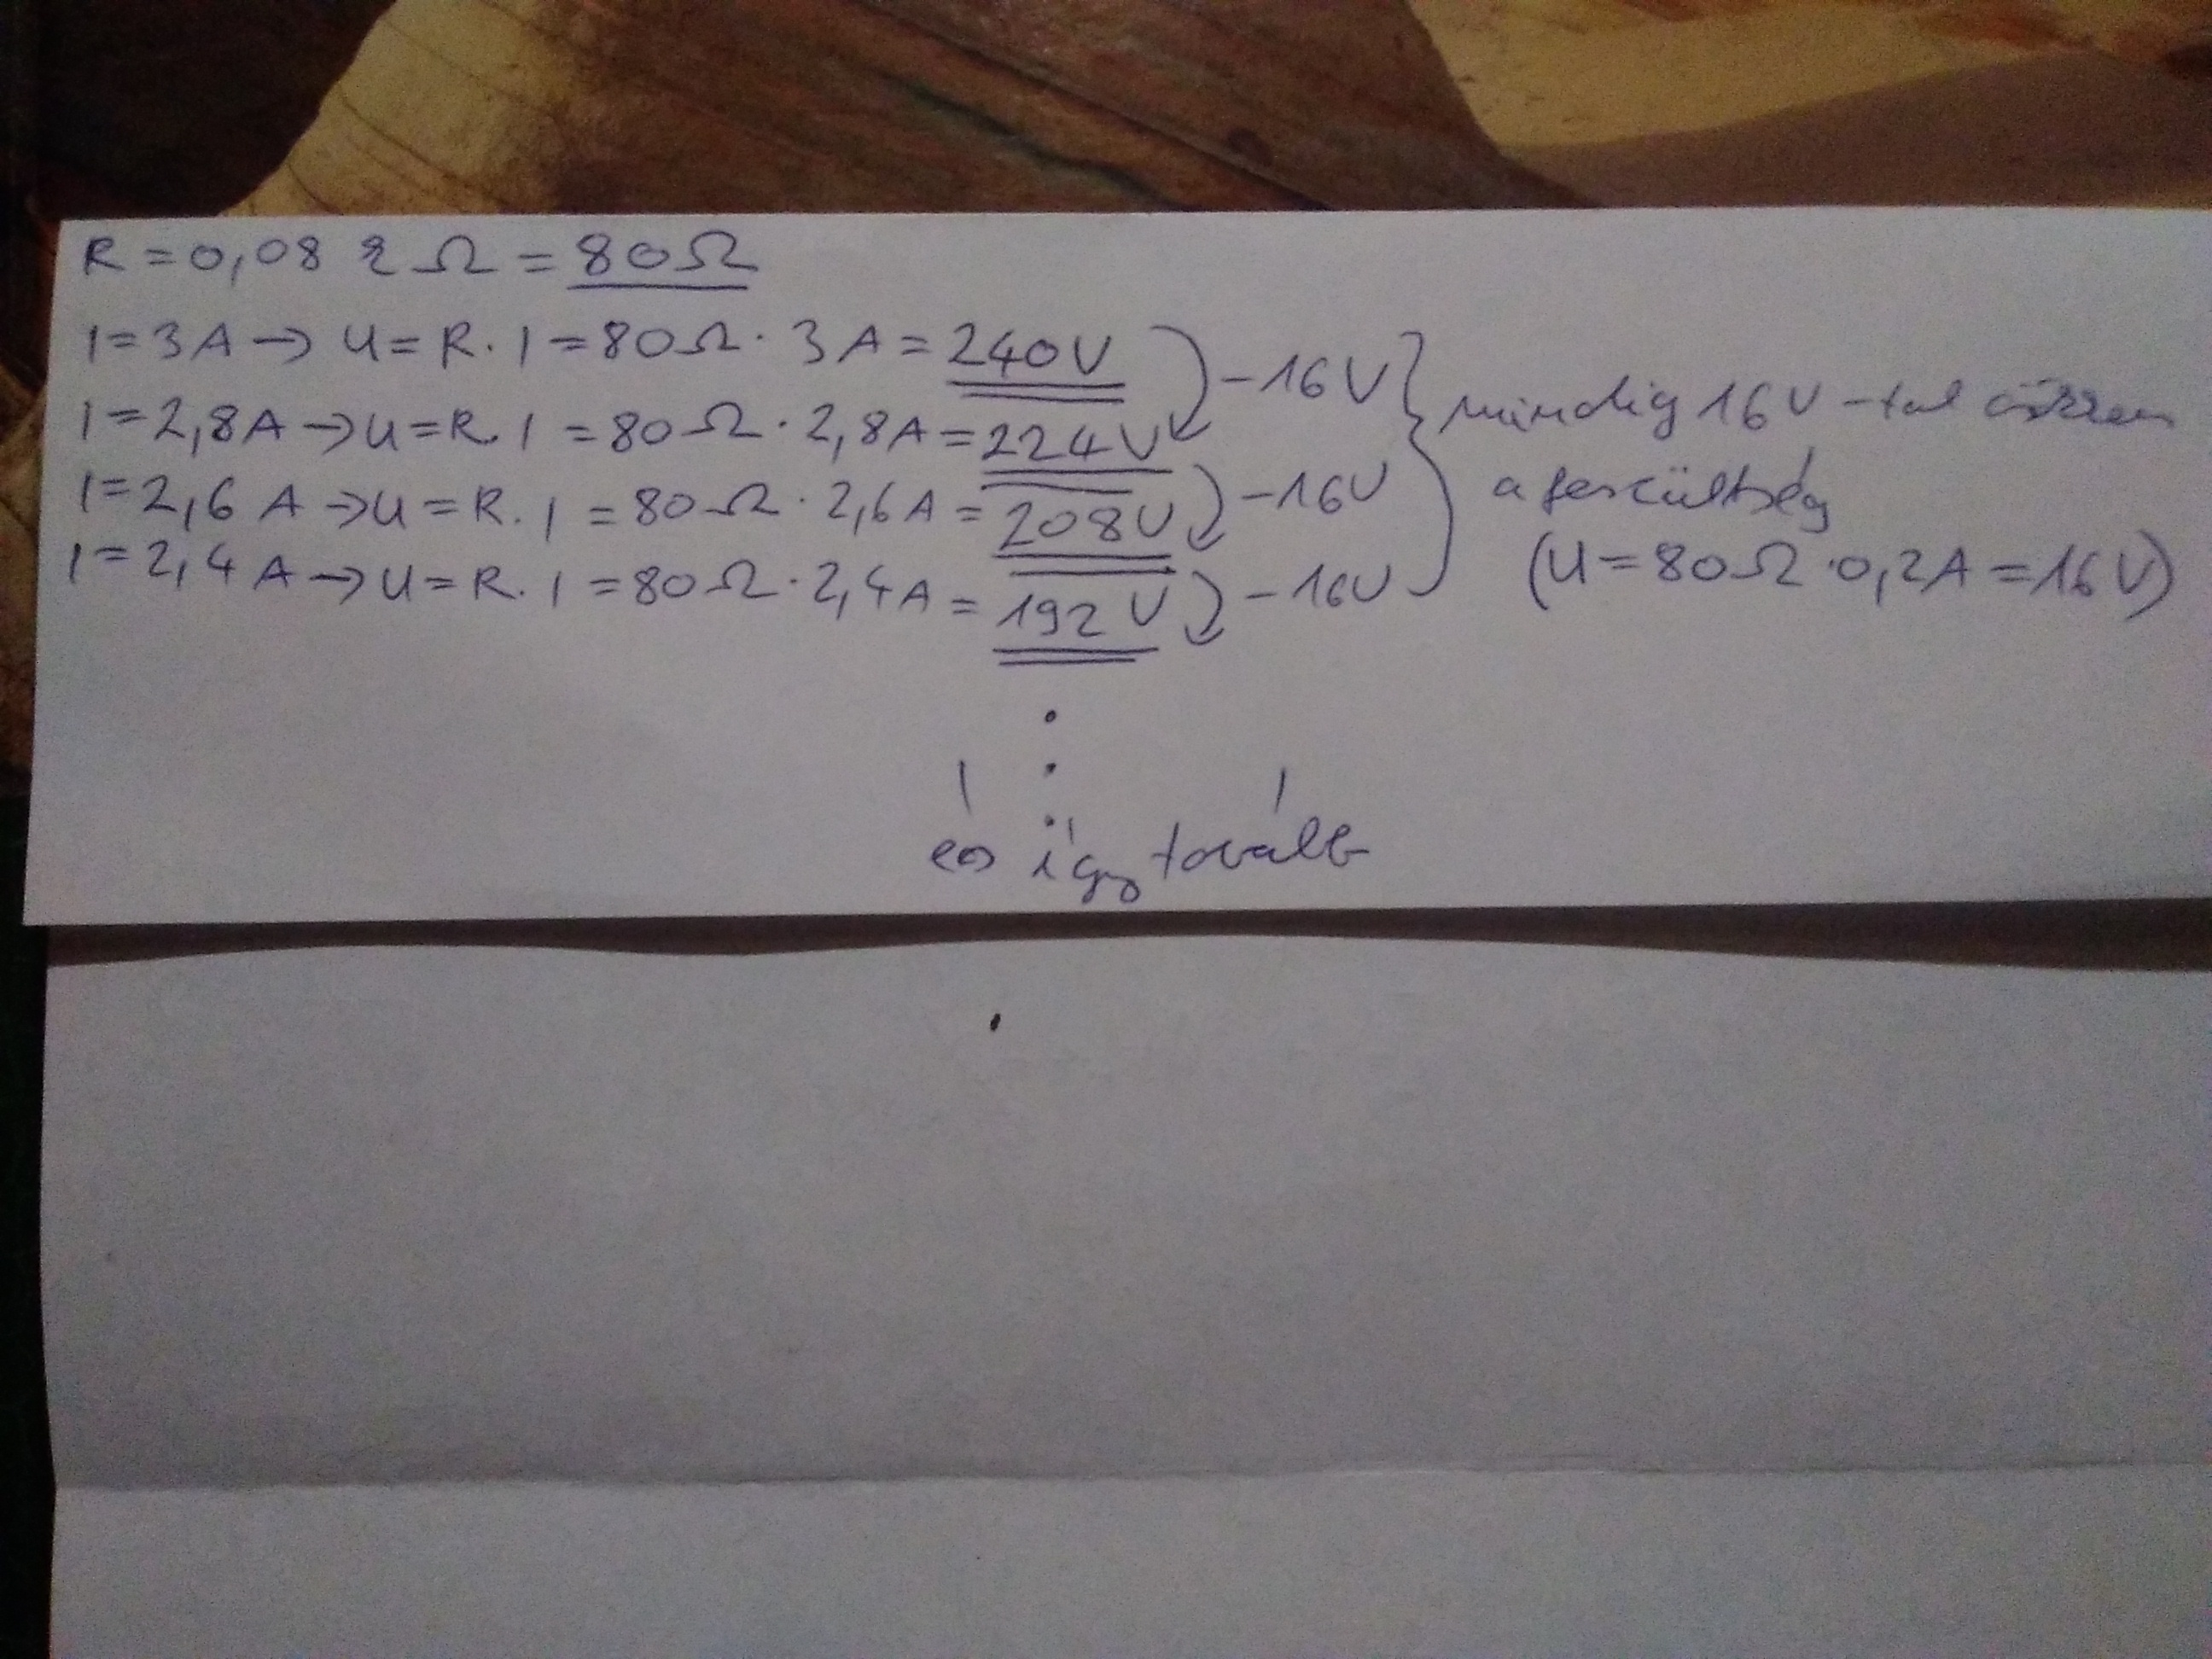 R = 0,08 k Ω = 80Ω
I = 3A → U = R · I = 80Ω · 3A = 240V
-16V
I = 2,8A → U = R · I = 80Ω · 2,8A = 224V
-16V
I = 2,6A → U = R · I = 80Ω · 2,6A = 208V
-16V
I = 2,4A → U = R · I = 80Ω · 2,4A = 192V
mindig 16V-tal csökken
a feszültség
(U = 80Ω · 0,2A = 16V)
és így tovább